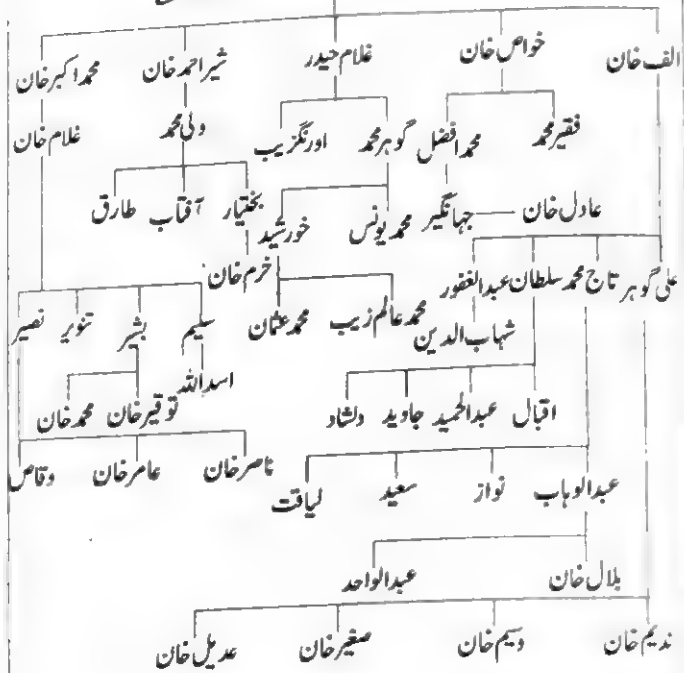 الف خان خواص خان غلام حیدر شیر احمد خان محمد اکبر خان
فقیر محمد محمد افضل گوہر محمد اورنگزیب ولی محمد غلام خان
عادل خان جہانگیر محمد یونس خورشید بختیار آفتاب طارق
علی گوہر تاج محمد سلطان عبدالغفور خرم خان
شہاب الدین محمد عالم زیب محمد عثمان سلیم بشیر تنویر نصیر
اقبال عبدالحمید جاوید دلشاد اسد اللہ توقیر خان محمد خان
ناصر خان عامر خان وقاص
عبدالوہاب نواز سعید لیاقت
بلال خان عبدالواحد
ندیم خان وسیم خان صغیر خان عدیل خان